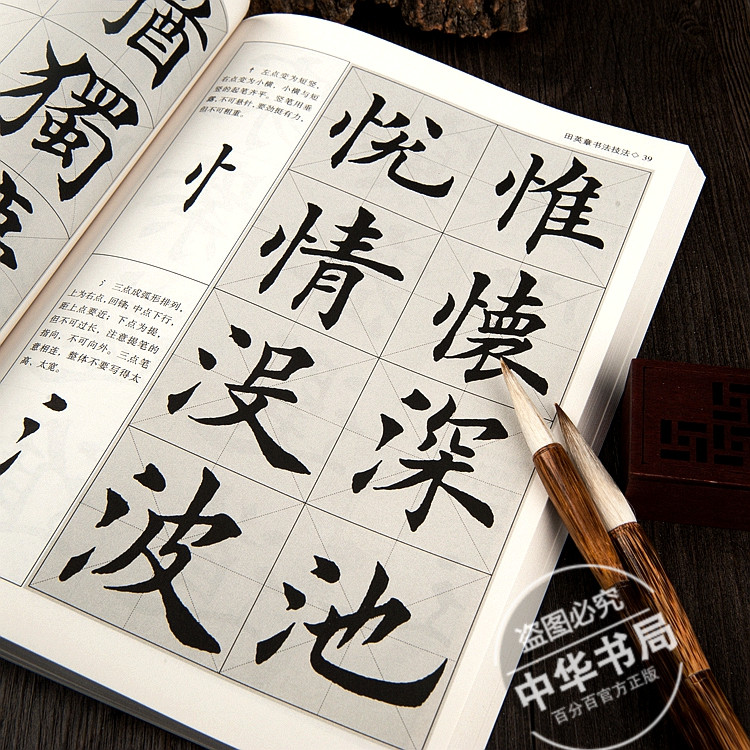 猶
獨
田英章书法技法◇39
忄 左点变为短竖,
右点变为小横。小横与短
竖的起笔齐平。竖笔用垂
露,不可悬针,要劲挺有力,
但不可粗重。
忄
氵 三点成弧形排列,
上为右点,回锋;中点下行,
距上点要近;下点为提,
但不可过长,注意提笔的
指向,不可向外。三点笔
意相连,整体不要写得太
高、太宽。
氵
悦 惟
情 懷
没 深
波 池
盗图必究
中华书局
百分百官方正版